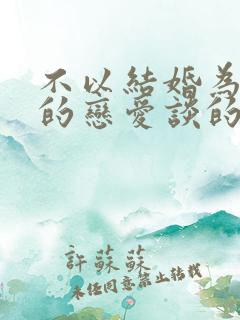 不以結婚為
的戀愛談的
許蘇蘇
未任同意禁止轉載